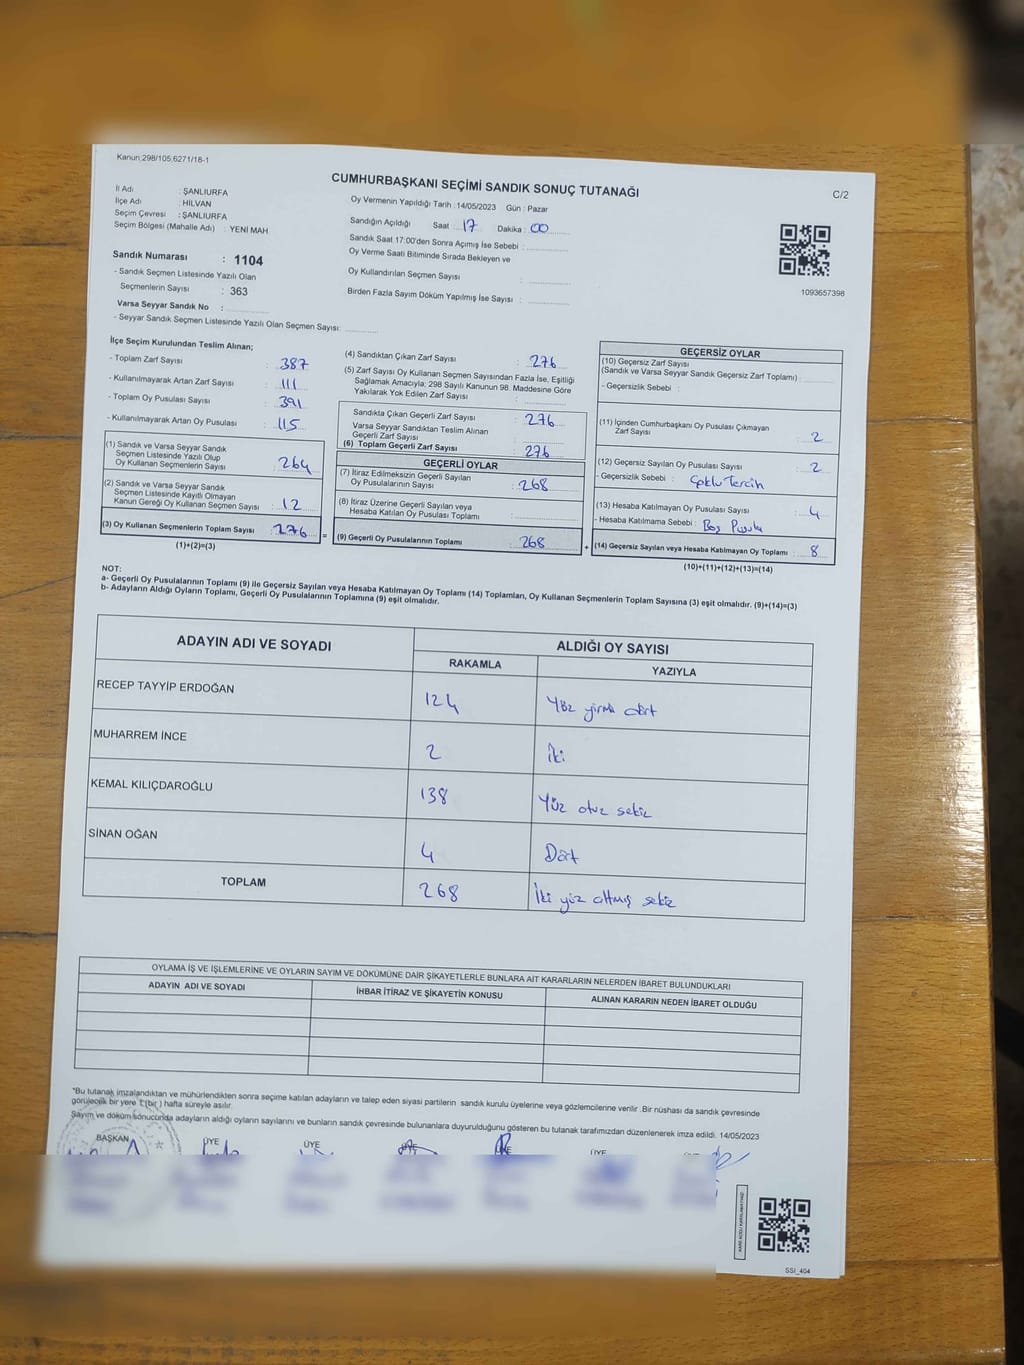 Kanun:298/105;6271/18-1
CUMHURBAŞKANI SEÇİMİ SANDIK SONUÇ TUTANAĞI
C/2
İl Adı : ŞANLIURFA
İlçe Adı : HİLVAN
Seçim Çevresi : ŞANLIURFA
Seçim Bölgesi (Mahalle Adı) : YENİ MAH
Sandık Numarası : 1104
- Sandık Seçmen Listesinde Yazılı Olan
Seçmenlerin Sayısı : 363
Varsa Seyyar Sandık No :
- Seyyar Sandık Seçmen Listesinde Yazılı Olan Seçmen Sayısı:
Oy Vermenin Yapıldığı Tarih : 14/05/2023 Gün : Pazar
Sandığın Açıldığı Saat 17 Dakika : 00
Sandık Saat 17:00'den Sonra Açımış İse Sebebi :
Oy Verme Saati Bitiminde Sırada Bekleyen ve
Oy Kullandırılan Seçmen Sayısı :
Birden Fazla Sayım Döküm Yapılmış İse Sayısı :
1093657398
İlçe Seçim Kurulundan Teslim Alınan;
- Toplam Zarf Sayısı : 387
- Kullanılmayarak Artan Zarf Sayısı : 111
- Toplam Oy Pusulası Sayısı : 391
- Kullanılmayarak Artan Oy Pusulası : 115
(1) Sandık ve Varsa Seyyar Sandık
Seçmen Listesinde Yazılı Olup
Oy Kullanan Seçmenlerin Sayısı : 264
(2) Sandık ve Varsa Seyyar Sandık
Seçmen Listesinde Kayıtlı Olmayan
Kanun Gereği Oy Kullanan Seçmen Sayısı : 12
(3) Oy Kullanan Seçmenlerin Toplam Sayısı : 276
(1)+(2)=(3)
(4) Sandıktan Çıkan Zarf Sayısı : 276
(5) Zarf Sayısı Oy Kullanan Seçmen Sayısından Fazla İse, Eşitliği
Sağlamak Amacıyla; 298 Sayılı Kanunun 98. Maddesine Göre
Yakılarak Yok Edilen Zarf Sayısı :
Sandıkta Çıkan Geçerli Zarf Sayısı : 276
Varsa Seyyar Sandıktan Teslim Alınan
Geçerli Zarf Sayısı :
(6) Toplam Geçerli Zarf Sayısı : 276
GEÇERLİ OYLAR
(7) İtiraz Edilmeksizin Geçerli Sayılan
Oy Pusulalarının Sayısı : 268
(8) İtiraz Üzerine Geçerli Sayılan veya
Hesaba Katılan Oy Pusulası Toplamı :
= (9) Geçerli Oy Pusulalarının Toplamı : 268
GEÇERSİZ OYLAR
(10) Geçersiz Zarf Sayısı
(Sandık ve Varsa Seyyar Sandık Geçersiz Zarf Toplamı) :
- Geçersizlik Sebebi :
(11) İçinden Cumhurbaşkanı Oy Pusulası Çıkmayan
Zarf Sayısı : 2
(12) Geçersiz Sayılan Oy Pusulası Sayısı : 2
- Geçersizlik Sebebi : Çoklu Tercih
(13) Hesaba Katılmayan Oy Pusulası Sayısı : 4
- Hesaba Katılmama Sebebi : Boş Pusula
+ (14) Geçersiz Sayılan veya Hesaba Katılmayan Oy Toplamı : 8
(10)+(11)+(12)+(13)=(14)
NOT:
a- Geçerli Oy Pusulalarının Toplamı (9) ile Geçersiz Sayılan veya Hesaba Katılmayan Oy Toplamı (14) Toplamları, Oy Kullanan Seçmenlerin Toplam Sayısına (3) eşit olmalıdır. (9)+(14)=(3)
b- Adayların Aldığı Oyların Toplamı, Geçerli Oy Pusulalarının Toplamına (9) eşit olmalıdır.
ADAYIN ADI VE SOYADI
ALDIĞI OY SAYISI
RAKAMLA YAZIYLA
RECEP TAYYİP ERDOĞAN 124 Yüz yirmi dört
MUHARREM İNCE 2 İki
KEMAL KILIÇDAROĞLU 138 Yüz otuz sekiz
SİNAN OĞAN 4 Dört
TOPLAM 268 İki yüz altmış sekiz
OYLAMA İŞ VE İŞLEMLERİNE VE OYLARIN SAYIM VE DÖKÜMÜNE DAİR ŞİKAYETLERLE BUNLARA AİT KARARLARIN NELERDEN İBARET BULUNDUKLARI
ADAYIN ADI VE SOYADI İHBAR İTİRAZ VE ŞİKAYETİN KONUSU ALINAN KARARIN NEDEN İBARET OLDUĞU
*Bu tutanak imzalandıktan ve mühürlendikten sonra seçime katılan adayların ve talep eden siyasi partilerin sandık kurulu üyelerine veya gözlemcilerine verilir .Bir nüshası da sandık çevresinde
görülecek bir yere 1 (bir ) hafta süreyle asılır.
Sayım ve döküm sonucunda adayların aldığı oyların sayılarını ve bunların sandık çevresinde bulunanlara duyurulduğunu gösteren bu tutanak tarafımızdan düzenlenerek imza edildi. 14/05/2023
BAŞKAN ÜYE ÜYE ÜYE ÜYE
SSI_404